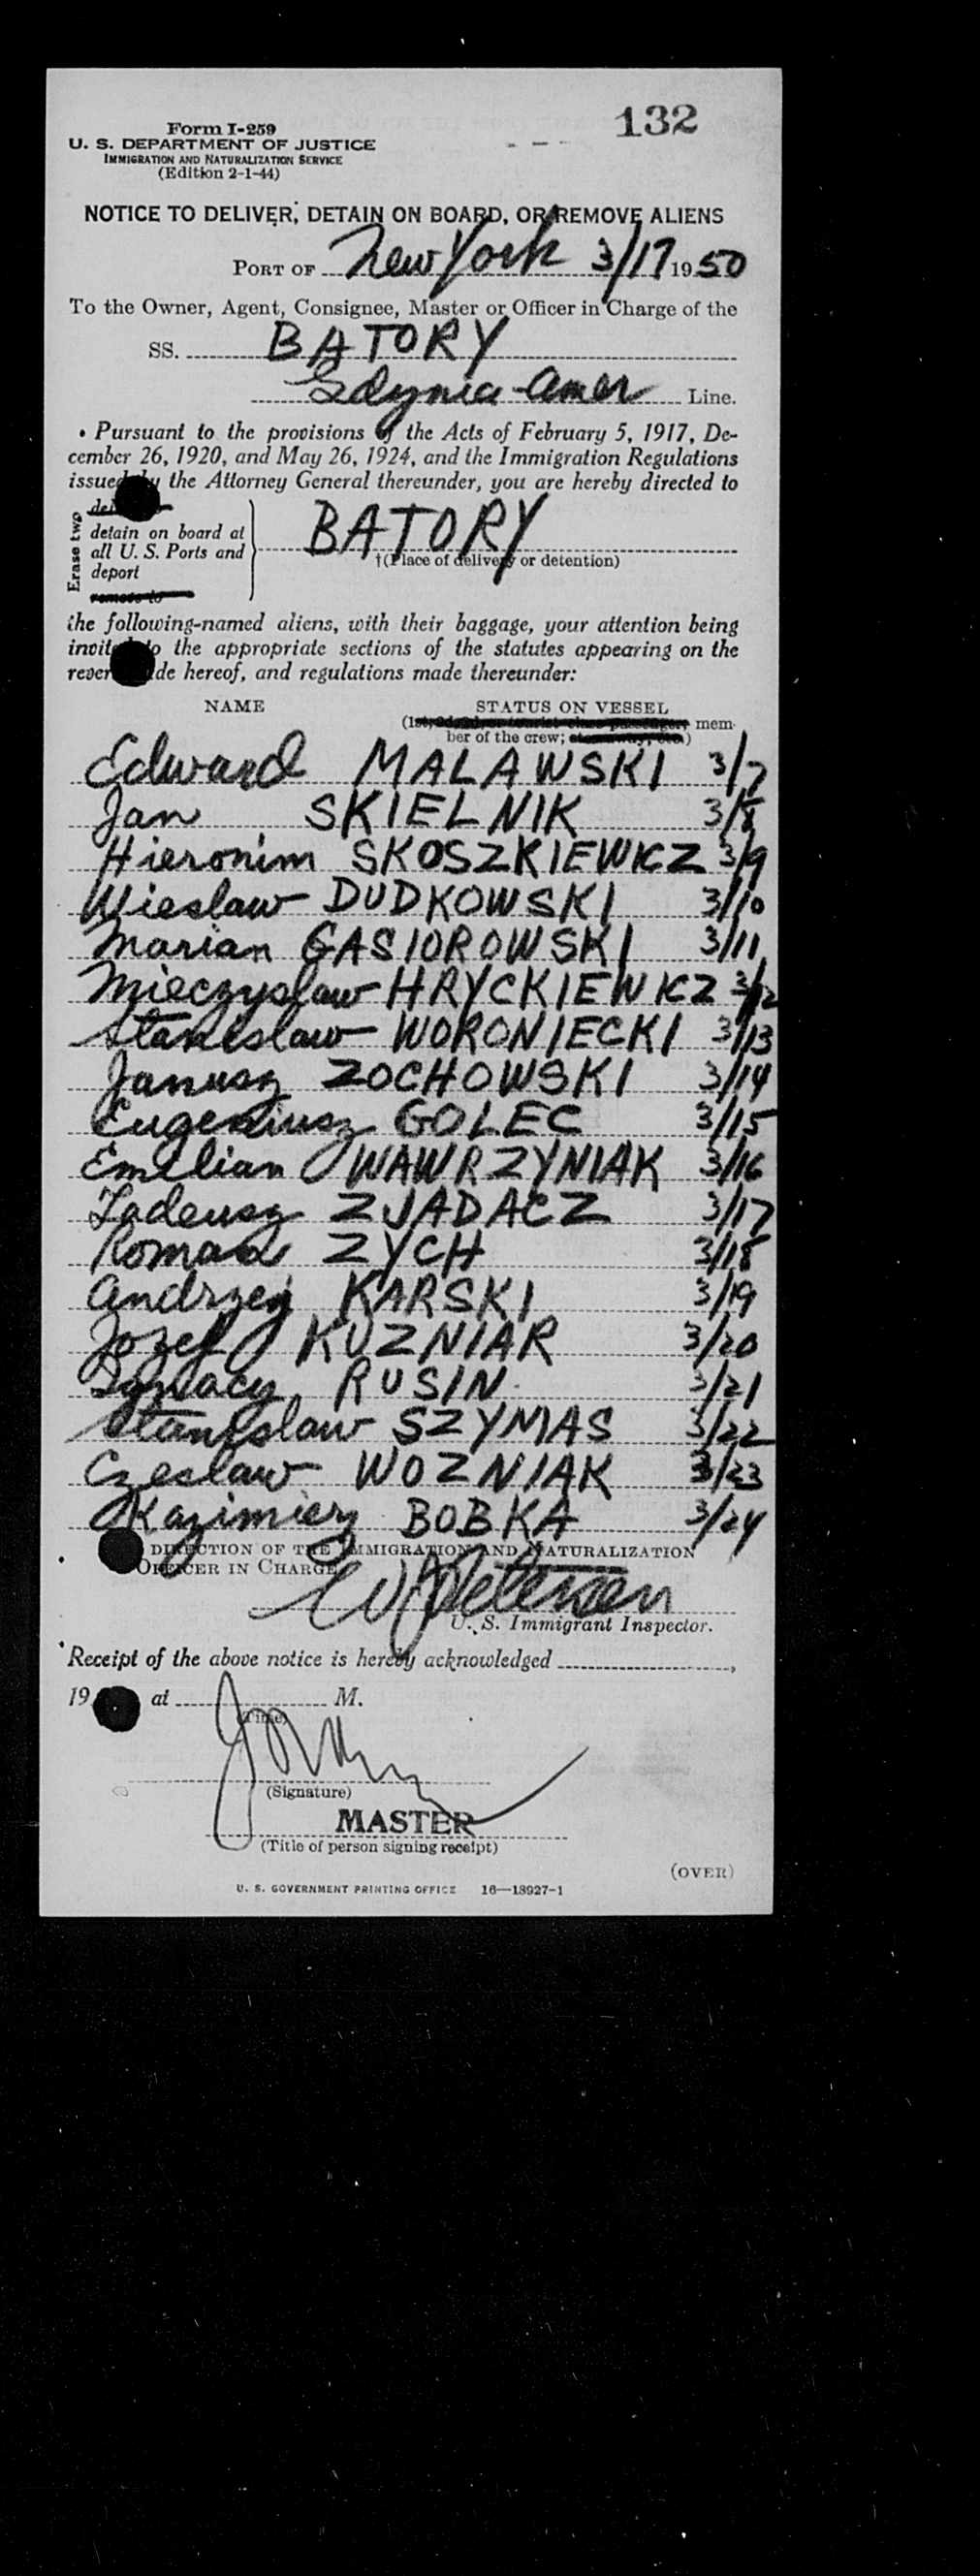 132
Form I-259
U. S. DEPARTMENT OF JUSTICE
IMMIGRATION AND NATURALIZATION SERVICE
(Edition 2-1-44)
NOTICE TO DELIVER, DETAIN ON BOARD, OR REMOVE ALIENS
PORT OF New York 3/17 1950
To the Owner, Agent, Consignee, Master or Officer in Charge of the
SS. BATORY
Gdynia-Amer Line.
Pursuant to the provisions of the Acts of February 5, 1917, De-
cember 26, 1920, and May 26, 1924, and the Immigration Regulations
issued by the Attorney General thereunder, you are hereby directed to
Erase two
detain on board at
all U. S. Ports and
deport
remove to
BATORY
†(Place of delivery or detention)
the following-named aliens, with their baggage, your attention being
invited to the appropriate sections of the statutes appearing on the
reverse side hereof, and regulations made thereunder:
NAME STATUS ON VESSEL
(1st, 2d, 3d, or tourist class passenger; mem-
ber of the crew; stowaway, etc.)
Edward MALAWSKI 3/7
Jan SKIELNIK 3/8
Hieronim SKOSZKIEWICZ 3/9
Wieslaw DUDKOWSKI 3/10
Marian GASIOROWSKI 3/11
Mieczyslaw HRYCKIEWICZ 3/12
Stanislaw WORONIECKI 3/13
Janusz ZOCHOWSKI 3/14
Eugeniusz GOLEC 3/15
Emilian WAWRZYNIAK 3/16
Tadeusz ZJADACZ 3/17
Roman ZYCH 3/18
Andrzej KARSKI 3/19
Jozef KUZNIAR 3/20
Ignacy RUSIN 3/21
Stanislaw SZYMAS 3/22
Czeslaw WOZNIAK 3/23
Kazimierz BOBKA 3/24
DIRECTION OF THE IMMIGRATION AND NATURALIZATION
OFFICER IN CHARGE
U. S. Immigrant Inspector.
Receipt of the above notice is hereby acknowledged
19 at M.
(Time)
(Signature)
MASTER
(Title of person signing receipt)
(OVER)
U. S. GOVERNMENT PRINTING OFFICE 16—18927-1